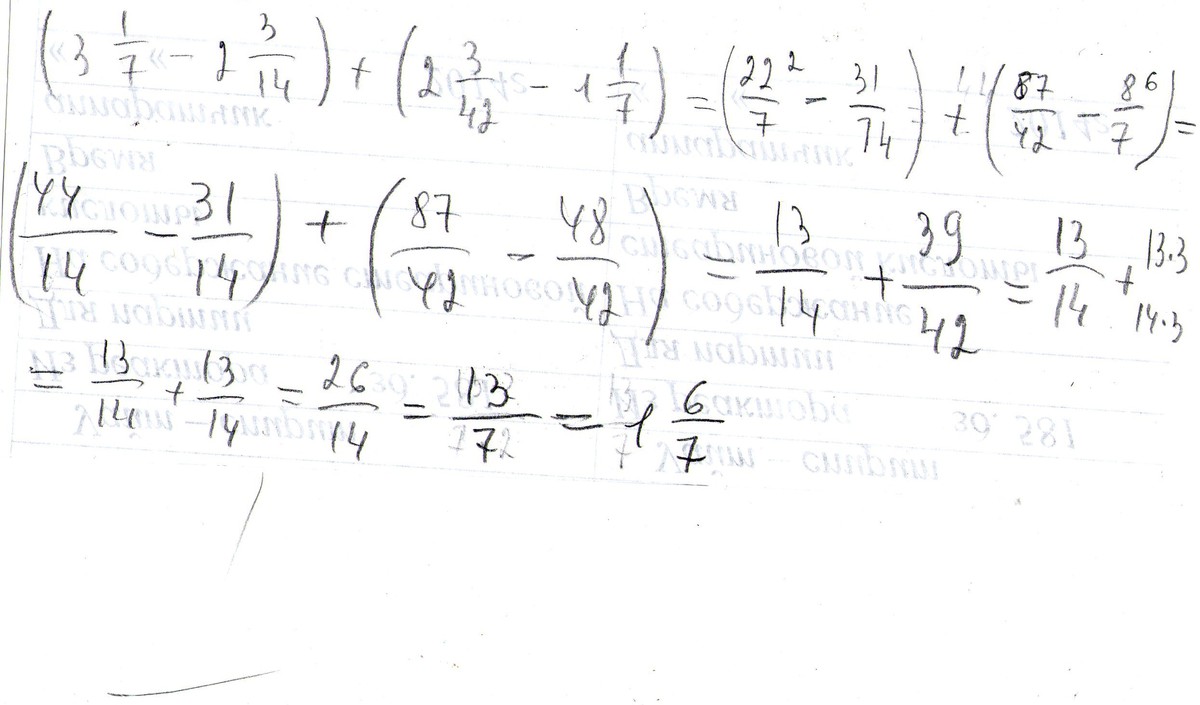 (3 1/7 - 2 3/14) + (2 3/42 - 1 1/7) = (22²/7 - 31/14) + (87/42 - 8⁶/7) =
(44/14 - 31/14) + (87/42 - 48/42) = 13/14 + 39/42 = 13/14 + 13·3/14·3
= 13/14 + 13/14 = 26/14 = 13/7 = 1 6/7